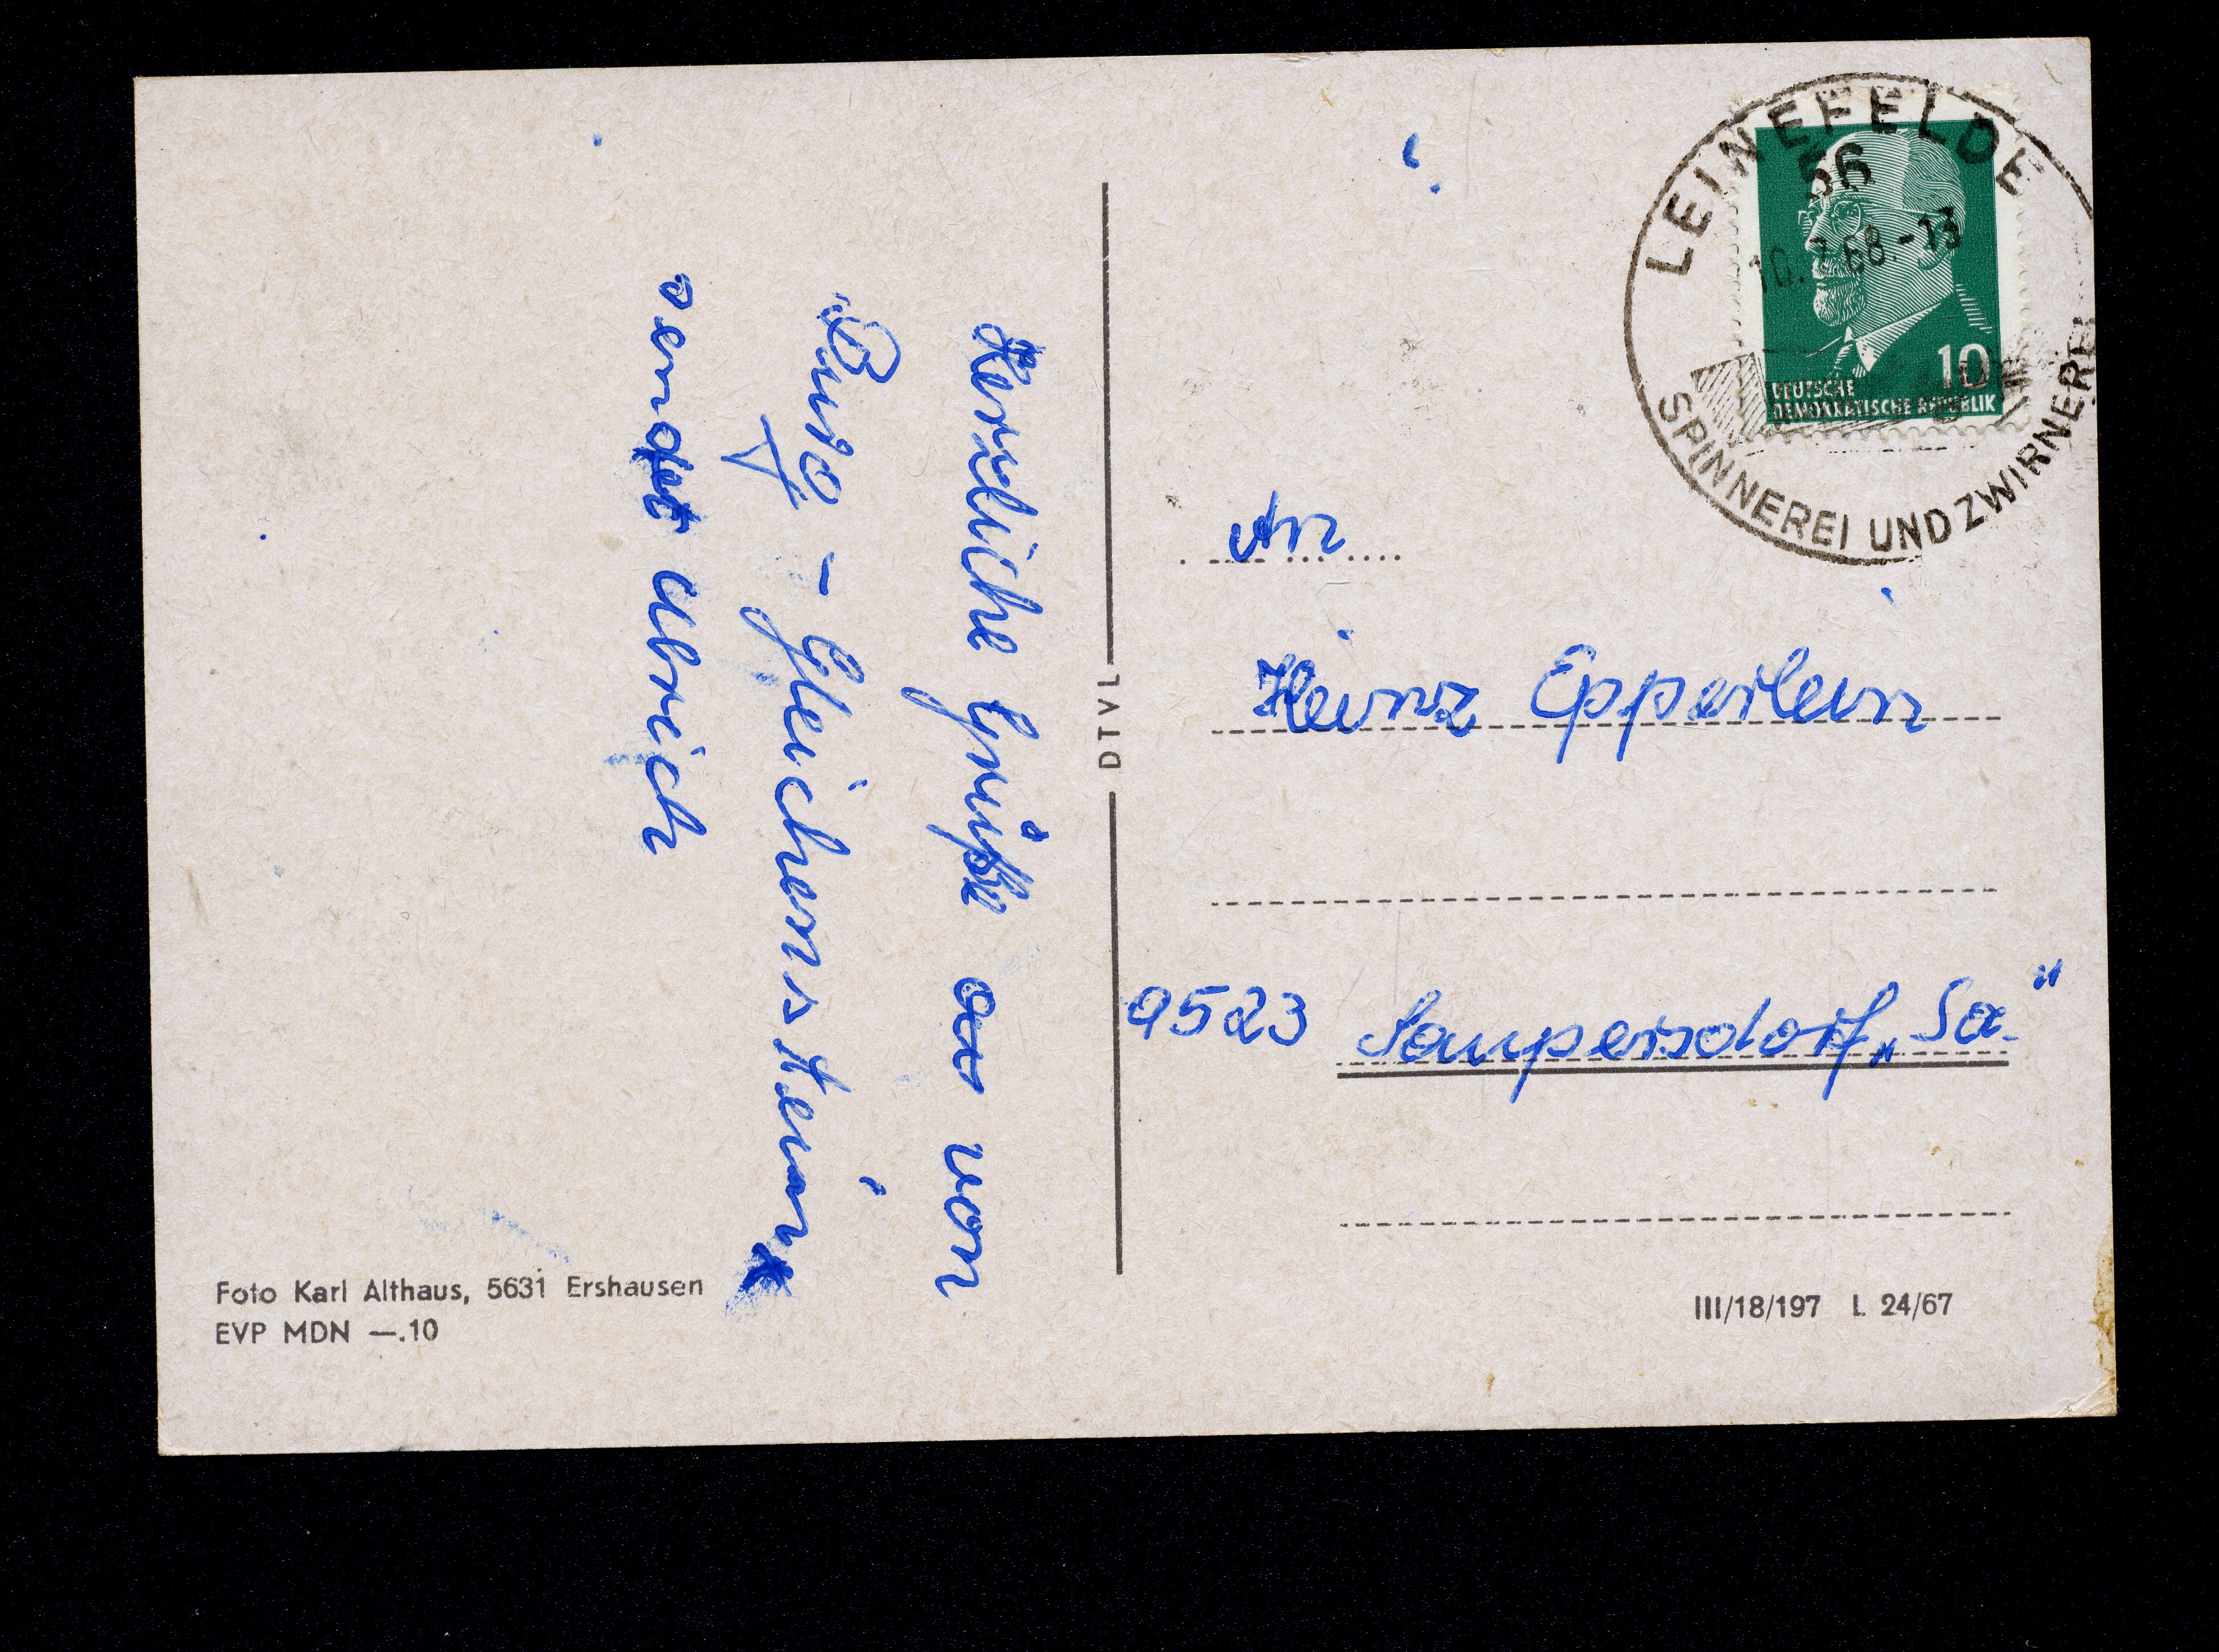 Herzliche Grüße von
Burg - Gleichenstein
sendet Ulrich
Foto Karl Althaus, 5631 Ershausen
EVP MDN —.10
DTVL
LEINEFELDE
56
10.7.68.-13
SPINNEREI UND ZWIRNEREI
10
DEUTSCHE
DEMOKRATISCHE REPUBLIK
An
Heinz Epperlein
9523 Langersdorf „Sa."
III/18/197 L 24/67